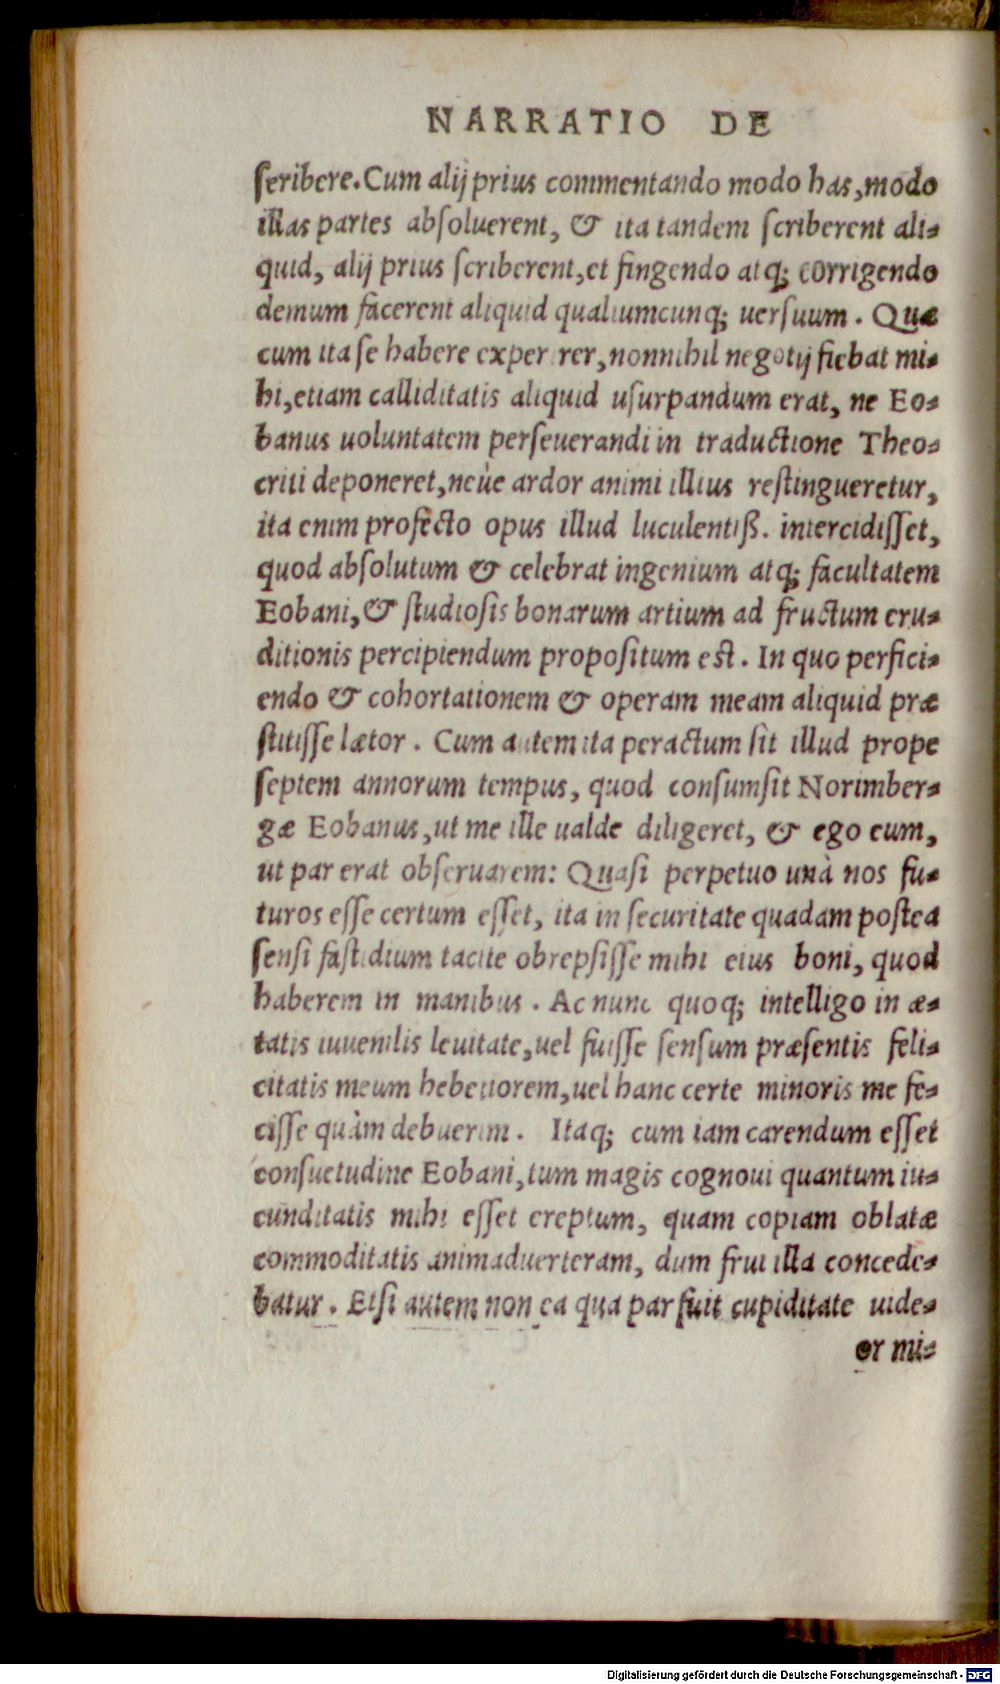 NARRATIO DE
ſcribere. Cum alij prius commentando modo has, modo
illas partes abſoluerent, & ita tandem ſcriberent ali-
quid, alij prius ſcriberent, et fingendo atq; corrigendo
demum facerent aliquid qualiumcunq; uerſuum. Quæ
cum ita ſe habere experirer, nonnihil negotij fiebat mi-
hi, etiam calliditatis aliquid uſurpandum erat, ne Eo-
banus uoluntatem perſeuerandi in traductione Theo-
criti deponeret, neùe ardor animi illius reſtingueretur,
ita enim profecto opus illud luculentiß. intercidiſſet,
quod abſolutum & celebrat ingenium atq; facultatem
Eobani, & ſtudioſis bonarum artium ad fructum eru-
ditionis percipiendum propoſitum eſt. In quo perfici-
endo & cohortationem & operam meam aliquid præ
ſtitiſſe lætor. Cum autem ita peractum ſit illud prope
ſeptem annorum tempus, quod conſumſit Norimber-
gæ Eobanus, ut me ille ualde diligeret, & ego eum,
ut par erat obſeruarem: Quaſi perpetuo unà nos fu-
turos eſſe certum eſſet, ita in ſecuritate quadam poſtea
ſenſi faſtidium tacite obrepſiſſe mihi eius boni, quod
haberem in manibus. Ac nunc quoq; intelligo in æ-
tatis iuuenilis leuitate, uel fuiſſe ſenſum præſentis feli-
citatis meum hebetiorem, uel hanc certe minoris me fe-
ciſſe quàm debuerim. Itaq; cum iam carendum eſſet
conſuetudine Eobani, tum magis cognoui quantum iu-
cunditatis mihi eſſet ereptum, quam copiam oblatæ
commoditatis animaduerteram, dum frui illa concede-
batur. Etſi autem non ea qua par fuit cupiditate uide-
or mi-
Digitalisierung gefördert durch die Deutsche Forschungsgemeinschaft - DFG